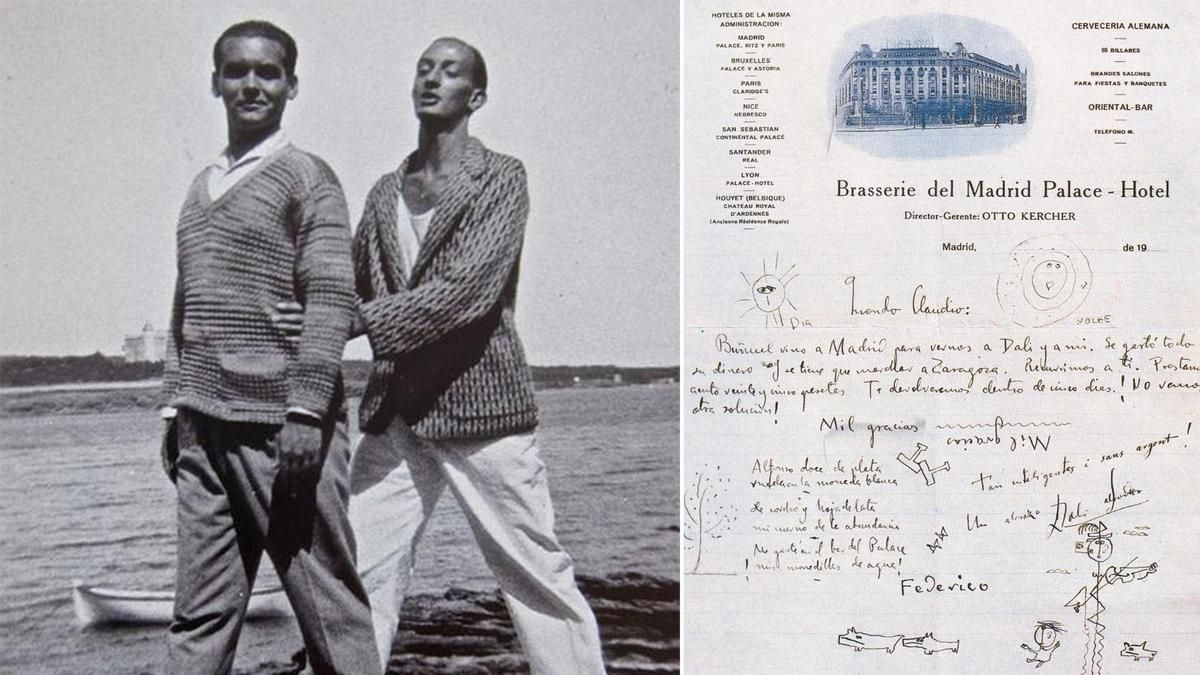 HOTELES DE LA MISMA
ADMINISTRACION:
MADRID
PALACE, RITZ Y PARIS
BRUXELLES
PALACE Y ASTORIA
PARIS
CLARIDGE'S
NICE
NEGRESCO
SAN SEBASTIAN
CONTINENTAL PALACE
SANTANDER
REAL
LYON
PALACE-HOTEL
HOUYET (BELGIQUE)
CHATEAU ROYAL
D'ARDENNES
(Ancienne Résidence Royale)
CERVECERIA ALEMANA
55 BILLARES
GRANDES SALONES
PARA FIESTAS Y BANQUETES
ORIENTAL-BAR
TELÉFONO M.
Brasserie del Madrid Palace - Hotel
Director-Gerente: OTTO KERCHER
Madrid, de 19
Dia
Claudio:
Buñuel vino a Madrid para vernos a Dalí y a mi. Se gastó todo
su dinero y se tiene que marchar a Zaragoza. Recurrimos a ti. Prestam
ciento veinte y cinco pesetas Te devolveremos dentro de cinco dias. ! No vemos
otra solución!
Mil gracias
Mil gracias
Tan inteligentes i sans argent!
Alfonso doce de plata
en la moneda blanca
De corcho y hojadelata
mi cuerno de la abundancia
Un Dalí
Me gasté en el bar del Palace
! mis monedillas de agua!
Federico